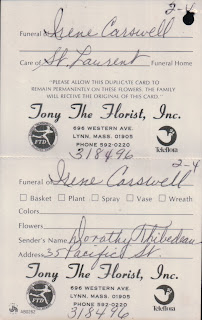 2-4
Funeral of Irene Carswell
Care of St. Laurent Funeral Home
"PLEASE ALLOW THIS DUPLICATE CARD TO
REMAIN PERMANENTLY ON THESE FLOWERS. THE FAMILY
WILL RECEIVE THE ORIGINAL OF THIS CARD."
Tony The Florist, Inc.
696 WESTERN AVE.
LYNN, MASS. 01905
PHONE 592-0220
FTD
Teleflora
318496
2-4
Funeral of Irene Carswell
Basket Plant Spray Vase Wreath
Colors
Flowers
Sender's Name Dorothy Thibedeau
Address 35 Pacific St.
Tony The Florist, Inc.
696 WESTERN AVE.
LYNN, MASS. 01905
PHONE 592-0220
FTD
Teleflora
318496